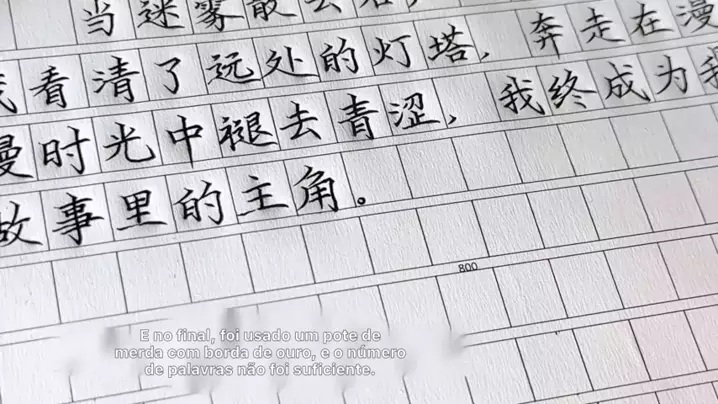 当迷雾散去后，
我看清了远处的灯塔，奔走在漫
漫时光中褪去青涩，我终成为我
故事里的主角。
800
E no final, foi usado um pote de
merda com borda de ouro, e o número
de palavras não foi suficiente.